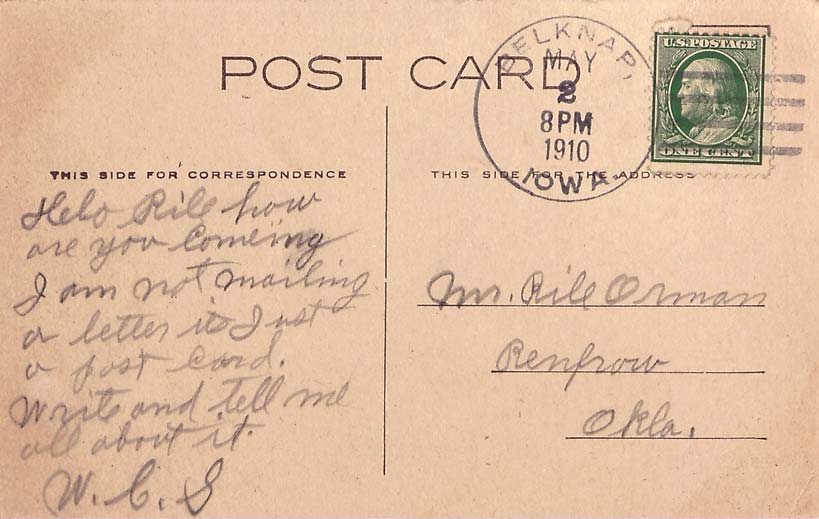 POST CARD
BELKNAP,
MAY
2
8PM
1910
IOWA.
U.S. POSTAGE
ONE CENT
THIS SIDE FOR CORRESPONDENCE
THIS SIDE FOR THE ADDRESS
Helo Rile how
are you Comeing
I am not mailing
a letter is Just
a post Card.
Write and tell me
all about it.
W. C. S
Mr. Rile Orman
Renfrow
Okla.